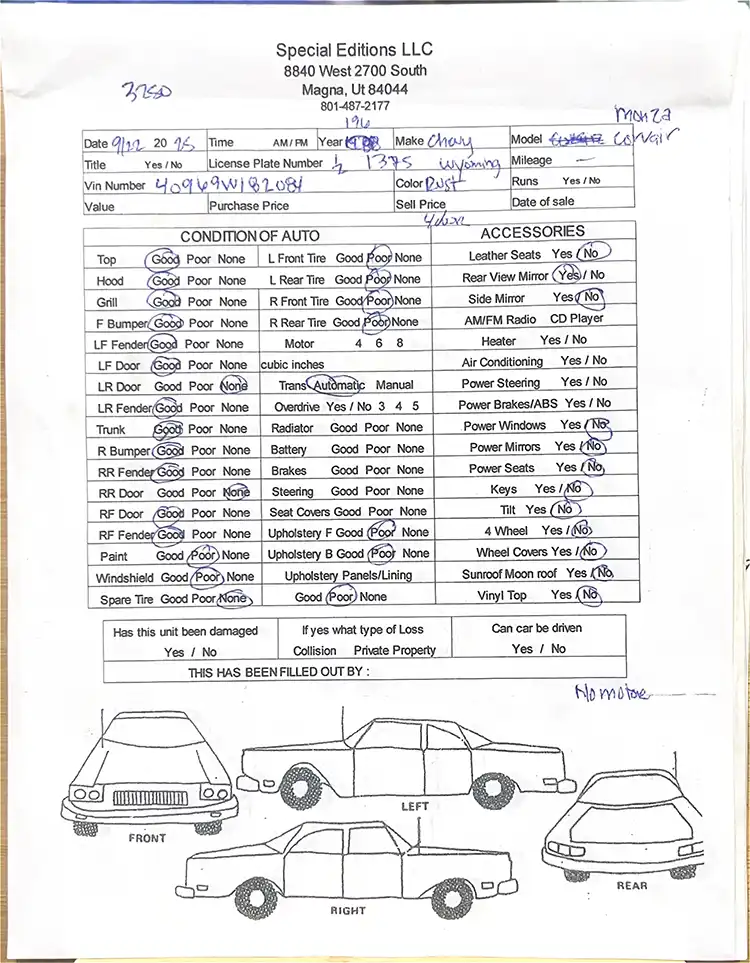 Special Editions LLC
8840 West 2700 South
3250 Magna, Ut 84044
801-487-2177
196 Monza
Date 9/22 2025 Time AM / PM Year Make Chevy Model Corvair
Title Yes / No License Plate Number 1/2 1375 Wyoming Mileage —
Vin Number 40969W182081 Color Rust Runs Yes / No
Value Purchase Price Sell Price Date of sale
4 door
CONDITION OF AUTO ACCESSORIES
Top Good Poor None L Front Tire Good Poor None Leather Seats Yes / No
Hood Good Poor None L Rear Tire Good Poor None Rear View Mirror Yes / No
Grill Good Poor None R Front Tire Good Poor None Side Mirror Yes / No
F Bumper Good Poor None R Rear Tire Good Poor None AM/FM Radio CD Player
LF Fender Good Poor None Motor 4 6 8 Heater Yes / No
LF Door Good Poor None cubic inches Air Conditioning Yes / No
LR Door Good Poor None Trans Automatic Manual Power Steering Yes / No
LR Fender Good Poor None Overdrive Yes / No 3 4 5 Power Brakes/ABS Yes / No
Trunk Good Poor None Radiator Good Poor None Power Windows Yes / No
R Bumper Good Poor None Battery Good Poor None Power Mirrors Yes / No
RR Fender Good Poor None Brakes Good Poor None Power Seats Yes / No
RR Door Good Poor None Steering Good Poor None Keys Yes / No
RF Door Good Poor None Seat Covers Good Poor None Tilt Yes / No
RF Fender Good Poor None Upholstery F Good Poor None 4 Wheel Yes / No
Paint Good Poor None Upholstery B Good Poor None Wheel Covers Yes / No
Windshield Good Poor None Upholstery Panels/Lining Sunroof Moon roof Yes / No
Spare Tire Good Poor None Good Poor None Vinyl Top Yes / No
Has this unit been damaged If yes what type of Loss Can car be driven
Yes / No Collision Private Property Yes / No
THIS HAS BEEN FILLED OUT BY :
No motor
LEFT
FRONT
REAR
RIGHT